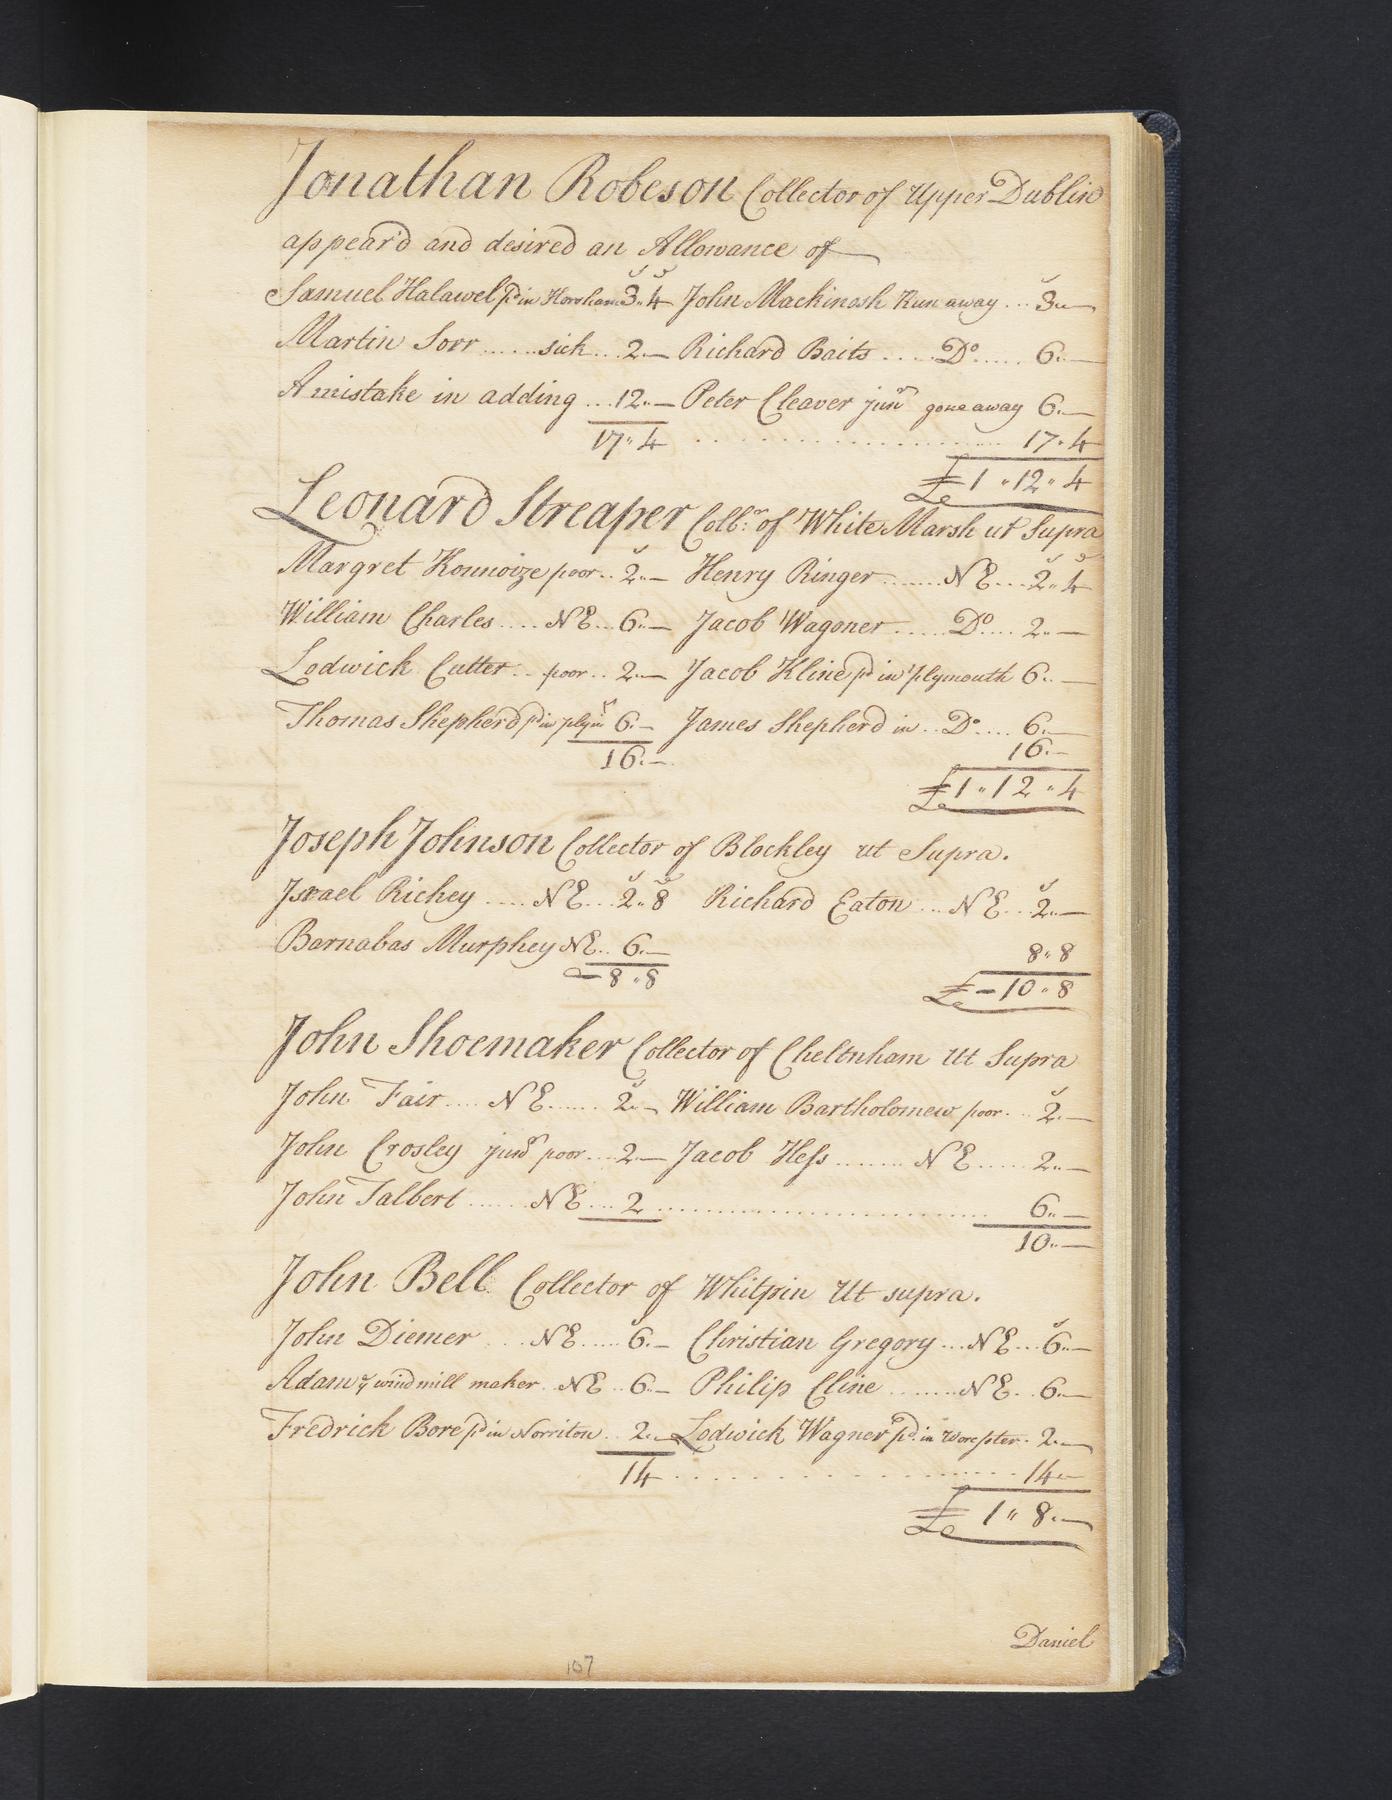 Jonathan Robeson Collector of Upper Dublin
appear'd and desired an Allowance of
Samuel Halawel pd in Horsham 3"4 John Mackinosh Run away ... 3"—
Martin Sorr ...... sick ... 2"— Richard Baits ..... Do ..... 6"—
A mistake in adding ... 12"— Peter Cleaver junr gone away 6"—
17"4 .................... 17"4
£1"12"4
Leonard Streaper Collr. of White Marsh ut Supra
Margret Kounoize poor .. 2"— Henry Ringer ....... NE ... 2"4
William Charles .... NE ... 6"— Jacob Wagoner ..... Do .... 2"—
Lodwick Cutter .. poor .. 2"— Jacob Kline pd in Plymouth 6"—
Thomas Shepherd pd in plym 6"— James Shepherd in .. Do .... 6"—
16"— 16"—
£1"12"4
Joseph Johnson Collector of Blockley ut Supra.
Israel Richey .... NE ... 2"8 Richard Eaton ... NE .. 2"—
Barnabas Murphey NE .. 6"— 8"8
—8"8 £—10"8
John Shoemaker Collector of Cheltnham Ut Supra
John Fair .... NE ...... 2"— William Bartholomew poor ... 2"—
John Crosley junr poor .... 2"— Jacob Hess ....... NE ...... 2"—
John Talbert ...... NE ... 2 .......................... 6"—
10"—
John Bell Collector of Whitpin Ut supra.
John Diemer ... NE ..... 6"— Christian Gregory ... NE ... 6"—
Adam ye windmill maker .. NE .. 6"— Philip Cline ....... NE .. 6"—
Fredrick Bore pd in Norriton .. 2"— Lodwick Wagner pd in Worcster . 2"—
14 .................... 14"—
£1"8"—
Daniel
107